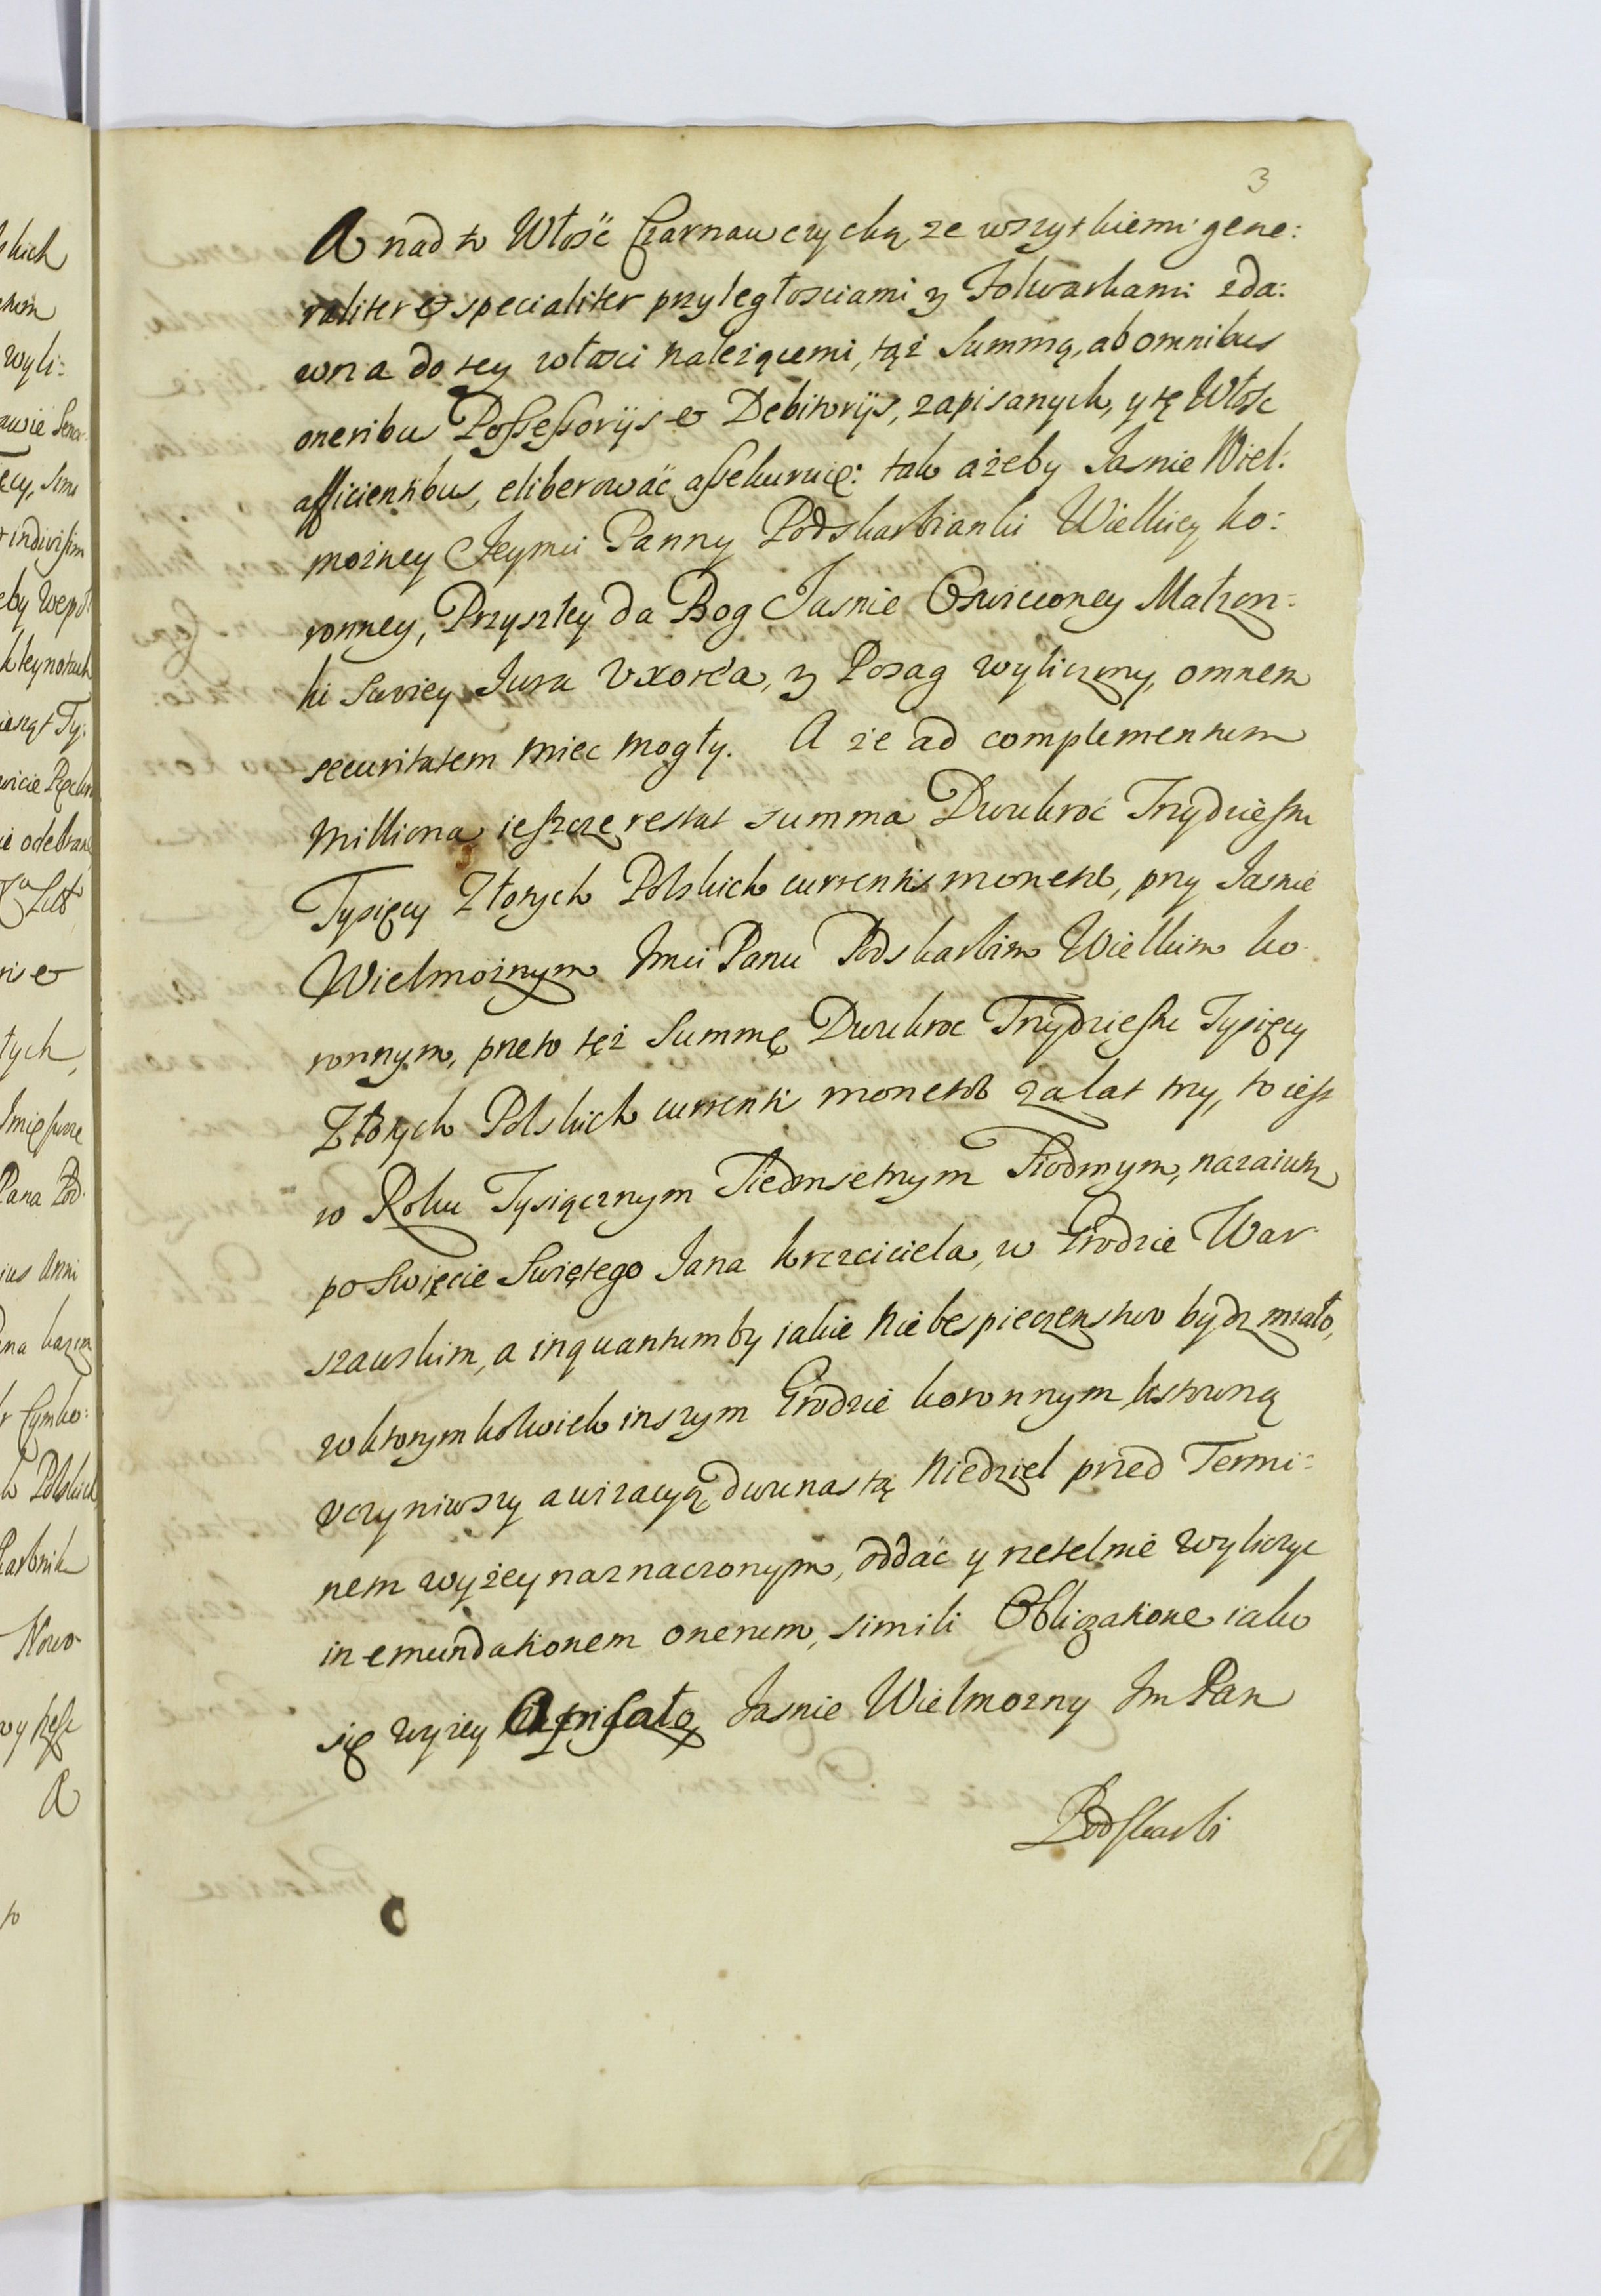 3
A nad to Włość Czarnawczycką, ze wszytkiemi gene:
raliter et specialiter przyległosciami y Folwarkami zda:
wna do tey włosci należącemi, tąż Summą, ab omnibus
oneribus Possessorijs et Debitorijs, zapisanych, y tę Włosc
afficientibus, eliberować assekuruię: tak ażeby Jasnie Wiel:
możney Jeymci Panny Podskarbianki Wielkiey Ko:
ronney, Przyszłey da Bog Jasnie Oswieconey Małzon:
ki Swoiey Jura Vxorea, y Posag wyliczony, omnem
securitatem miec mogły. A że ad complementum
Milliona ieszcze restat summa Dwukroć Trzydziestu
Tysięcy Złotych Polskich currentis monetæ, przy Jasnie
Wielmożnym Imci Panu Podskarbim Wielkim Ko:
ronnym, przeto tęż Summę Dwukroc Trzydziestu Tysięcy
Złotych Polskich currentis monetæ za lat trzy, to iest
w Roku Tysiącznym Siedmsetnym Siodmym, nazaiutrz
po Swięcie Swiętego Jana Krzciciela, w Grodzie War:
szawskim, a inquantum by iakie niebespieczenstwo bydz miało,
w ktorymkolwiek inszym Grodzie koronnym, listowną
vczyniwszy awizacyą dwunastą Niedziel przed Termi:
nem wyżey naznaczonym, oddać y rzetelnie wyliczyc
in emundationem onerum, simili Obligatione iako
się wyżey opisało, Jasnie Wielmozny Im Pan
Podskarbi
skich
wyli:
awie Sena:
indivisim
kleynotach
odebrane
et
tych,
Pana Pod:
Anni
Polskich
Nowo
A
to